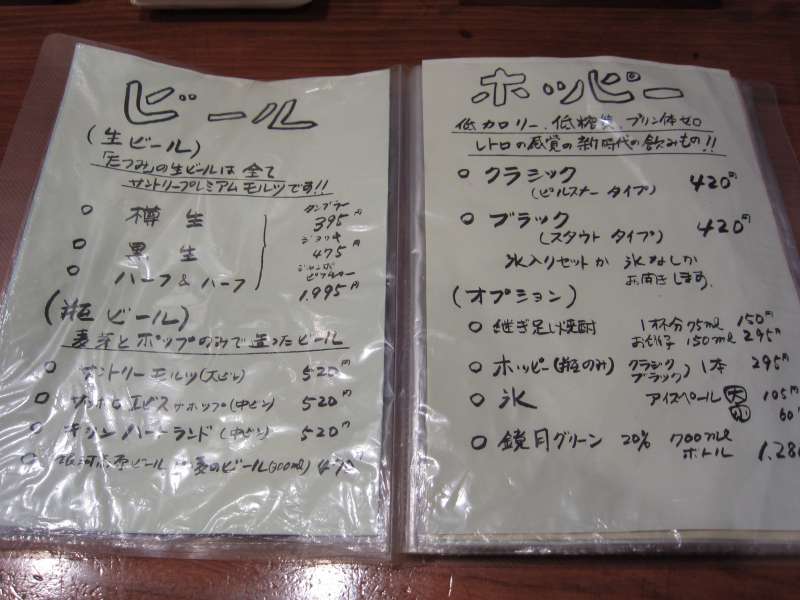 ビール
(生ビール)
の生ビールは全て
サントリープレミアムモルツです!!
タンブラー
○ 樽生 395円
ジョッキ
○ 黒生 475円
○ ハーフ&ハーフ
1.995円
(瓶ビール)
麦芽とホップのみで造ったビール
○ サントリーモルツ(大ビン) 520円
○ サッポロエビス ザホップ(中ビン) 520円
○ キリン ハートランド(中ビン) 520円
○ 銀河高原ビール 麦のビール(300ml) 470円
ホッピー
低カロリー、低糖質、プリン体ゼロ
レトロの感覚の新時代の飲みもの!!
○ クラシック 420円
(ピルスナータイプ)
○ ブラック 420円
(スタウトタイプ)
氷入りセットか 氷なしか
お聞きします。
(オプション)
○ 継ぎ足し焼酎 1杯分75ml 150円
お銚子 150ml 295円
○ ホッピー(瓶のみ) クラシック ブラック) 1本 295円
○ 氷 アイスペール 大 105円
小 60
○ 鏡月グリーン 20% 700ml
ボトル 1.28